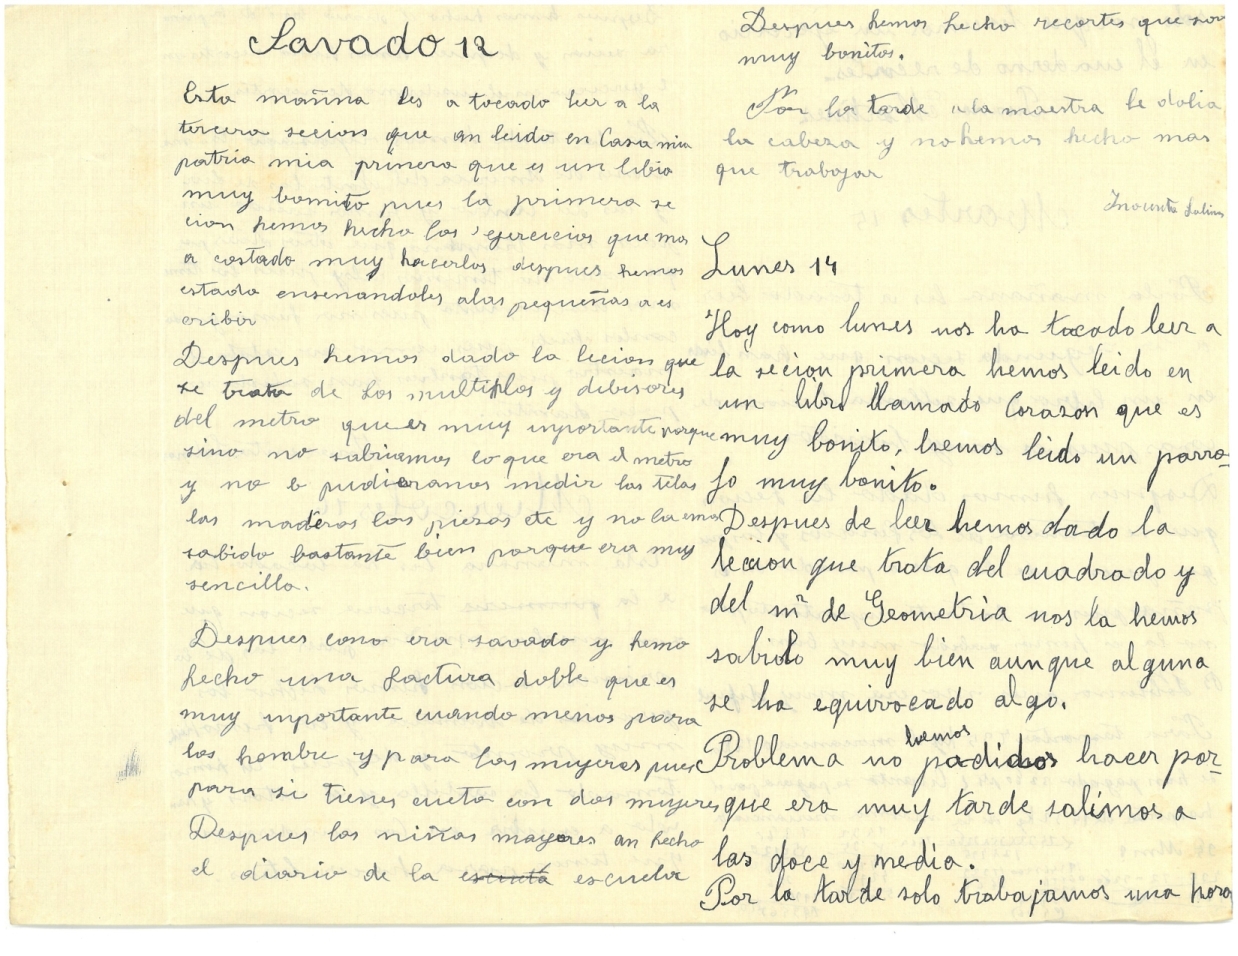 Savado 12
Esta mañna les a tocado leer a la
tercera secion que an leido en Casa mia
patria mia primera que es un libio
muy bomito pues la primera se
cion hemos hecho los ejercicios que mos
a costado muy hacerlos despues hemos
estado ensenandoles alas pequeñas a es
cribir
Despues hemos dado la lecion que
se trata de los multiplos y debisores
del metro que er muy inportante porque
sino no sabriamos lo que era el metro
y no e pudieramos medir las telas
las maderas las piezas ete y no la emos
sabido bastante bien porque era muy
sencillo.
Despues cono era savado y hemo
hecho una factura doble que es
muy inportante cuando menos para
los hombre y para las mujeres pues
para si tienes cueta con dos mujeres
Despues las niñas mayores an hecho
el diario de la escueta escuela
Despues hemos hecho recortes que son
muy bonitos.
Por la tarde a la maestra le dolia
la cabeza y nohemos hecho mas
que trabajar
Lunes 14
Hoy como lunes nos ha tocado leer a
la secion primera hemos leido en
un libro llamado Corazon que es
muy bonito, hemos leido un parra-
fo muy bonito.
Despues de leer hemos dado la
leccion que trata del cuadrado y
del mº de Geometria nos la hemos
sabido muy bien aunque alguna
se ha equivocado algo.
hemos
Problema no podidos hacer por-
que era muy tarde salimos a
las doce y media.
Por la tarde solo trabajamos una hora